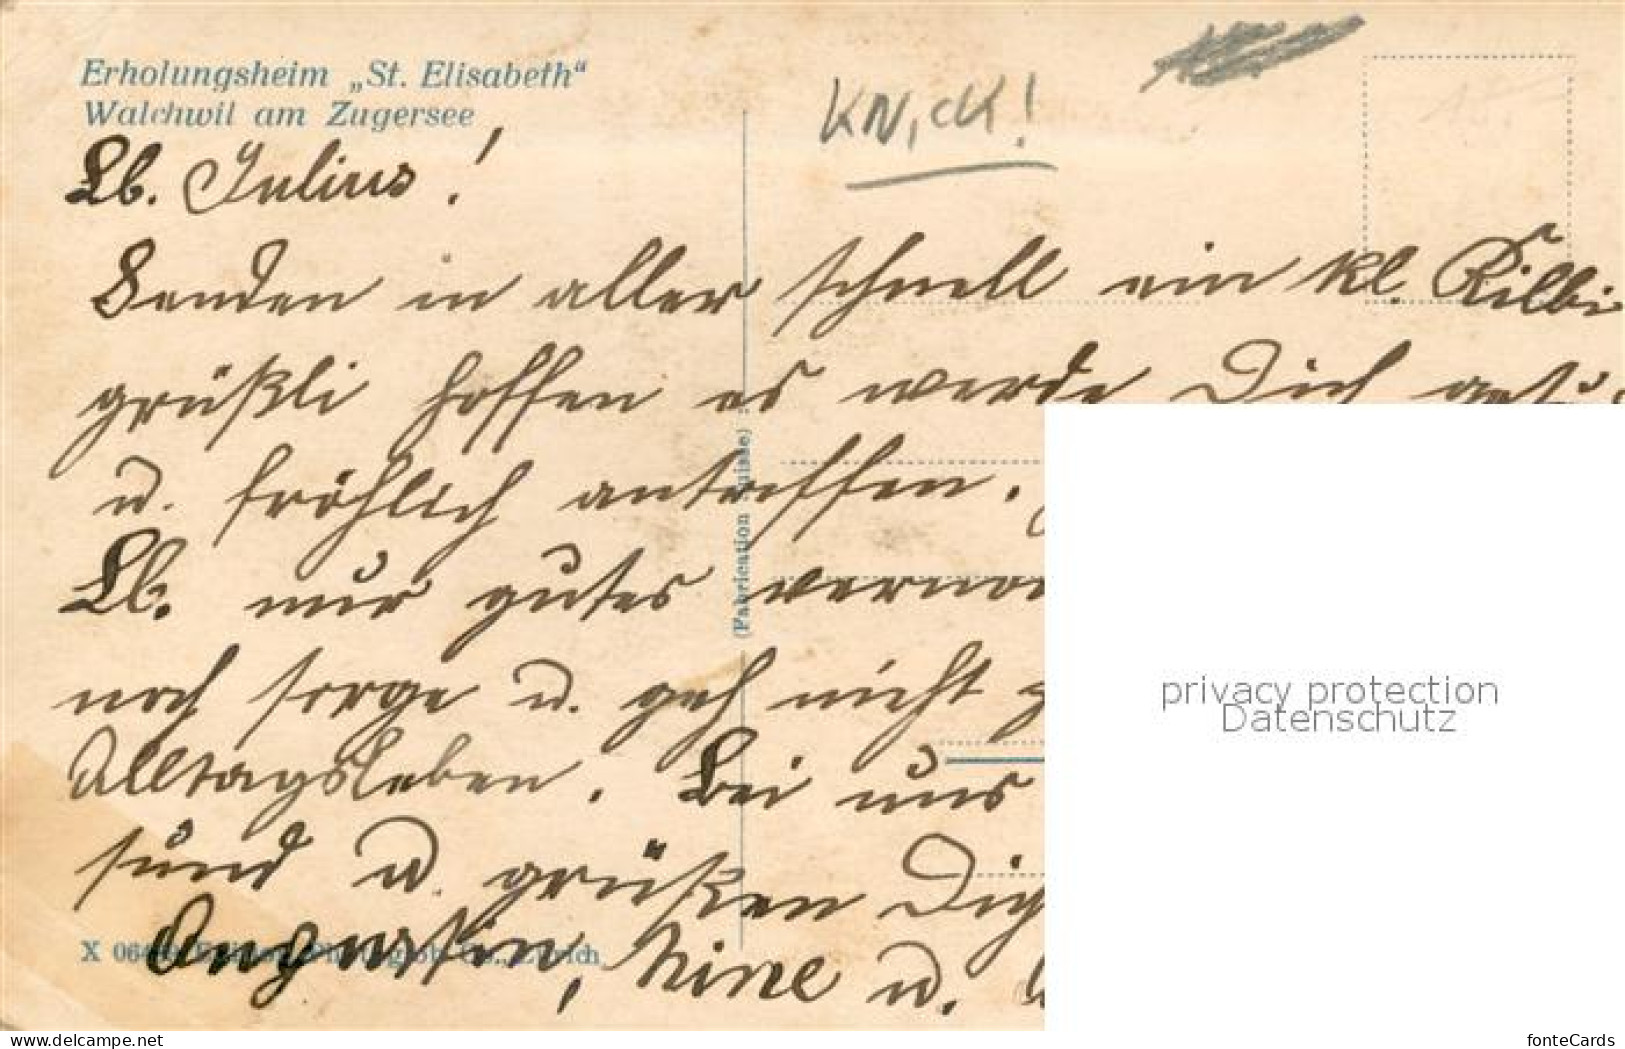 Erholungsheim „St. Elisabeth"
Walchwil am Zugersee
KNicK!
Lb. Julius!
Senden in aller schnell ein kl. Kilbi
grüßli hoffen es werde Dich
u. fröhlich antreffen.
Lb. nur gutes
noch sorge u. geh nicht
Alltagsleben. Bei uns
sund u. grüßen Dich
Augustin, Nine u.
(Fabrication Suisse)
X 06 Photoglob Co., Zürich
privacy protection
Datenschutz
www.delcampe.net
fonteCards